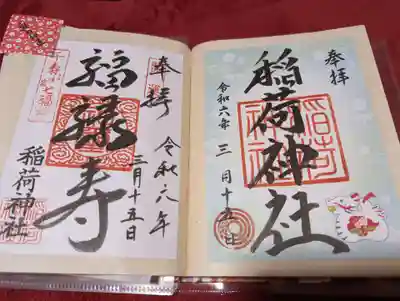 奉拝
稲荷神社
令和六年 三月十五日
稲荷神社
奉拝
令和六年
三月十五日
福禄寿
稲荷神社